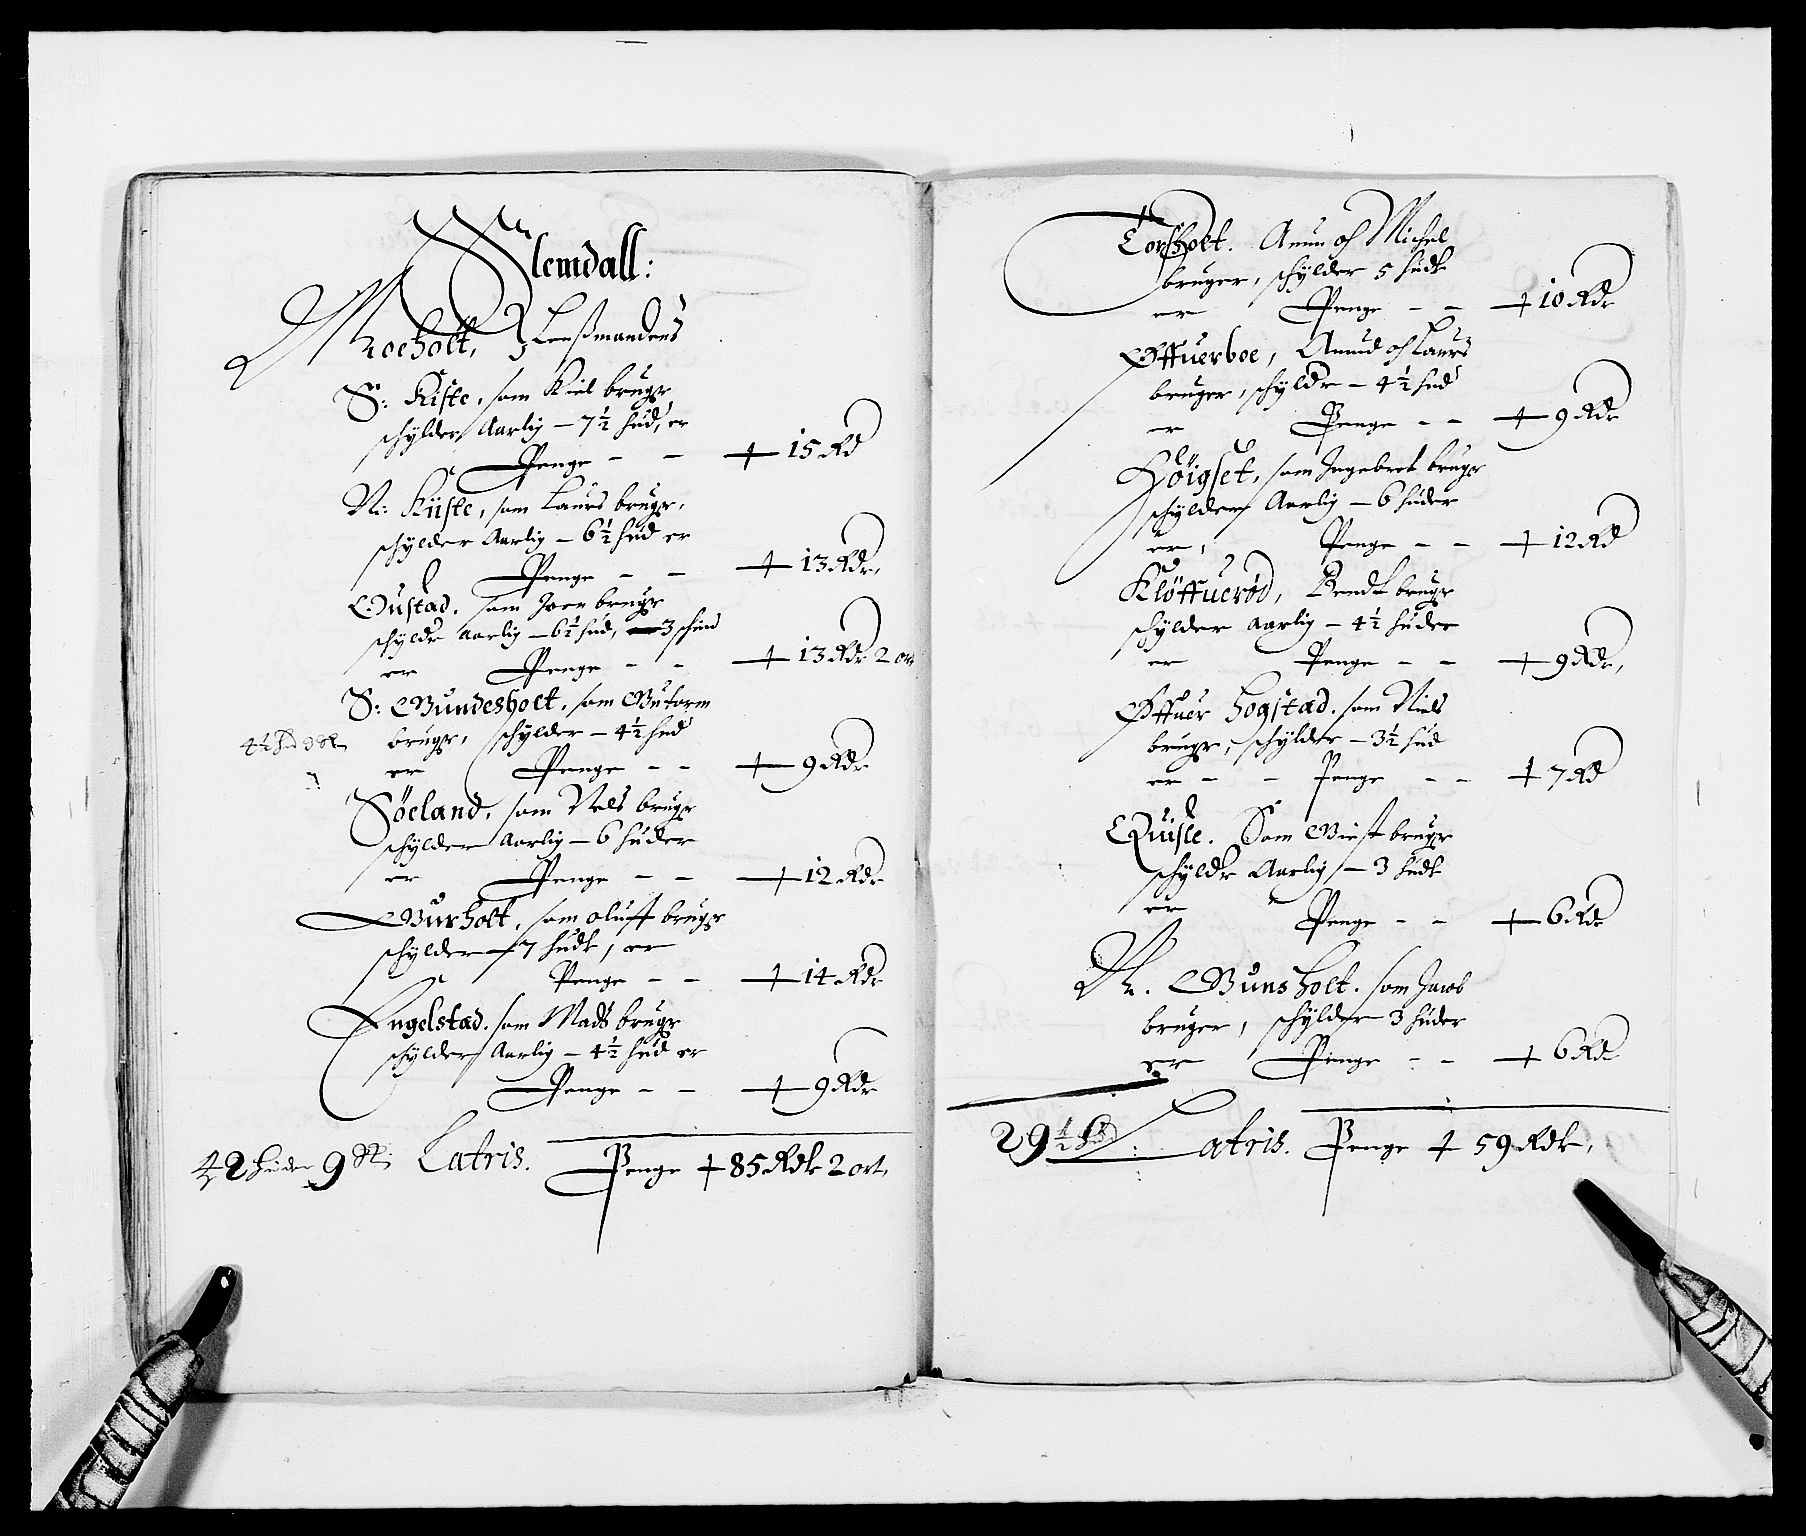 Slemdall:
Moeholt, Lenßmandens
S: Kiste, som Kiel brugr
schylder Aarlig – 7½ hud, er
Penge – – 15 Rd
N: Kiiste, som Laurs brugr,
schylder Aarlig – 6½ hud er
Penge – – 13 Rdr,
Oustad, som Joen brugr
schyldr Aarlig – 6½ hud, 3 schind
er Penge – – 13 Rdr 2 ort
S: Gundesholt, som Gutorm
brugr, schylder – 4½ hud
er Penge – – 9 Rdr
Söeland, som Nels brugr
schylder Aarlig – 6 huder
er Penge – – 12 Rdr
Gurholt, som oluff brugr
schylder – 7 hudr, er
Penge – – 14 Rdr
Engelstad, som Mads brugr
schylder Aarlig – 4½ hud er
Penge – – 9 Rdr
42 huder 9 sk: Latris. Penge 85 Rdr 2 ort,
Torsholt. Anun och Michel
bruger, schylder 5 hudr
er Penge – – 10 Rdr
Offuerboe, Amud och Laurs
bruger, schyldr – 4½ hud
er Penge – – 9 Rdr
Höigset, som Ingebret brugr
schylder Aarlig – 6 huder
er, Penge – – 12 Rd
Klöffuerød, Bendt brugr
schylder Aarlig – 4½ huder
er Penge – – 9 Rdr,
Offuer Hogstad, som Niels
brugr, schylder – 3½ hud
er – – Penge – – 7 Rd
Quisle. Som brugr
schyldr Aarlig – 3 hudr
er Penge – – 6 Rdr
N. Gunsholt. som Jacob
bruger, schylder 3 huder
er Penge – – 6 Rd
29½ hud: Latris. Penge 59 Rdr,